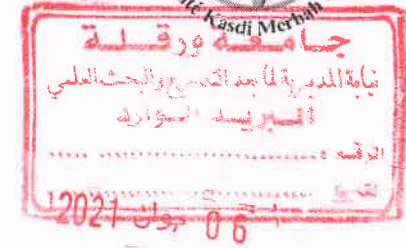 Kasdi Merbah
جامعة ورقلة
نيابة المديرية لما بعد التدرج والبحث العلمي
البريد الوارد
الرقم :
06 جوان 2021